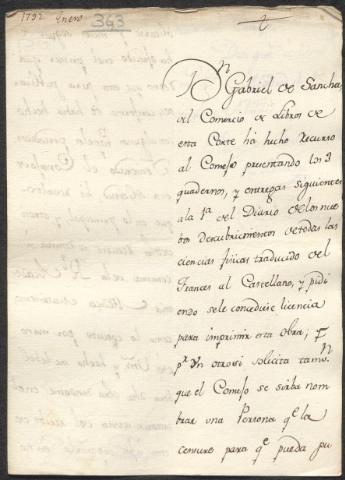 1792 Enero 363
Dn Gabriel de Sancha
del Comercio de Libros de
esta Corte ha hecho Recurso
al Consejo presentando los 3
quadernos, y entregas siguientes
a la 1a del Diario de los nue
bos descubrimientos de todas las
ciencias fisicas traducido del
Frances al Castellano, y pidi
endo se le concediese licencia
para imprimir esta obra; y
pr un otrosi solicita tamn
que el Consejo se sirba nom
brar una Persona qe la
censure para qe pueda pu